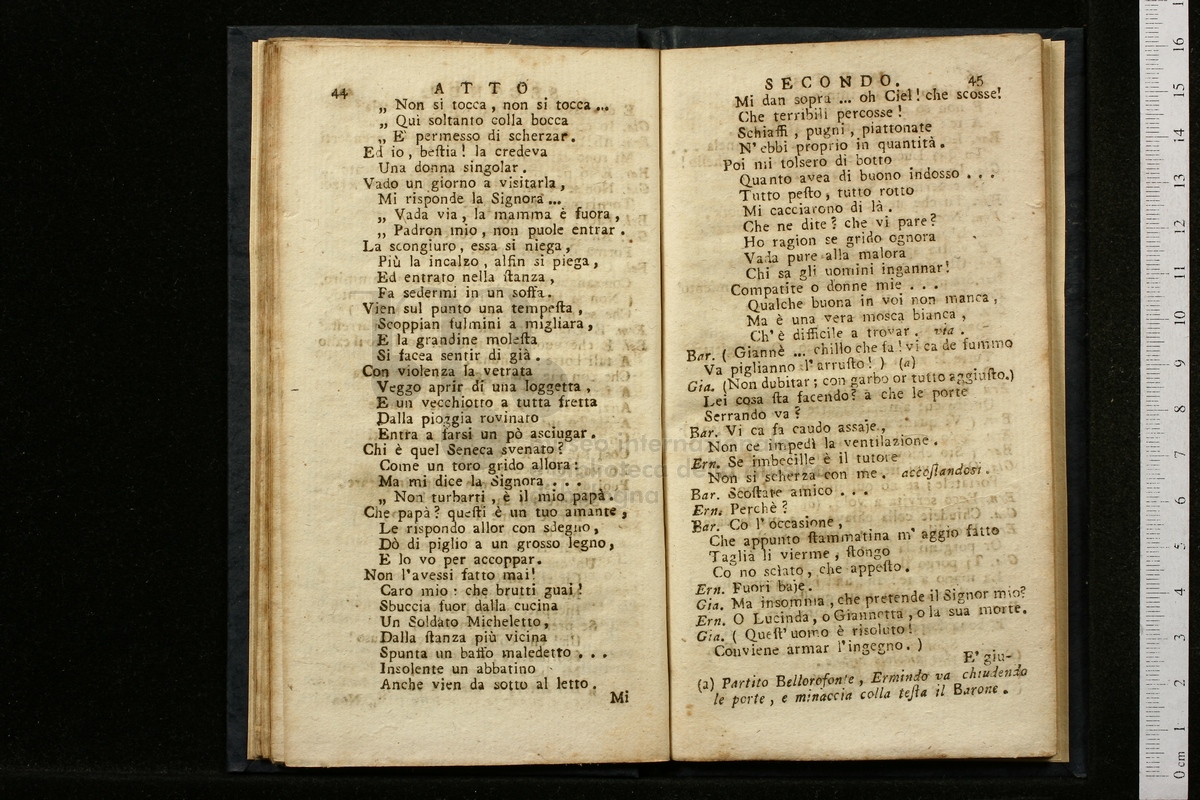 44 ATTO
„ Non si tocca, non si tocca ...
„ Qui soltanto colla bocca
„ E' permesso di scherzar.
Ed io, beſtia! la credeva
Una donna singolar.
Vado un giorno a visitarla,
Mi risponde la Signora ...
„ Vada via, la mamma è fuora,
„ Padron mio, non puole entrar.
La scongiuro, essa si niega,
Più la incalzo, alfin si piega,
Ed entrato nella ſtanza,
Fa sedermi in un soffà.
Vien sul punto una tempeſta,
Scoppian fulmini a migliara,
E la grandine moleſta
Si facea sentir di già.
Con violenza la vetrata
Veggo aprir di una loggetta,
E un vecchiotto a tutta fretta
Dalla pioggia rovinato
Entra a farsi un pò asciugar.
Chi è quel Seneca svenato?
Come un toro grido allora:
Ma mi dice la Signora . . .
„ Non turbarti, è il mio papà.
Che papà? queſti è un tuo amante,
Le rispondo allor con sdegno,
Dò di piglio a un grosso legno,
E lo vo per accoppar.
Non l'avessi fatto mai!
Caro mio: che brutti guai!
Sbuccia fuor dalla cucina
Un Soldato Micheletto,
Dalla ſtanza più vicina
Spunta un baffo maledetto . . .
Insolente un abbatino
Anche vien da sotto al letto.
Mi
SECONDO. 45
Mi dan sopra ... oh Ciel! che scosse!
Che terribili percosse!
Schiaffi, pugni, piattonate
N'ebbi proprio in quantità.
Poi mi tolsero di botto
Quanto avea di buono indosso . . .
Tutto peſto, tutto rotto
Mi cacciarono di là.
Che ne dite? che vi pare?
Ho ragion se grido ognora
Vada pure alla malora
Chi sa gli uomini ingannar!
Compatite o donne mie . . .
Qualche buona in voi non manca,
Ma è una vera mosca bianca,
Ch'è difficile a trovar. via.
Bar. ( Giannè ... chillo che fa! vi ca de fummo
Va piglianno l'arruſto! ) (a)
Gia. (Non dubitar; con garbo or tutto aggiuſto.)
Lei cosa ſta facendo? a che le porte
Serrando va?
Bar. Vi ca fa caudo assaje,
Non ce impedì la ventilazione.
Ern. Se imbecille è il tutore
Non si scherza con me. accoſtandosi.
Bar. Scoſtate amico . . .
Ern. Perchè?
Bar. Co l'occasione,
Che appunto ſtammatina m'aggio fatto
Taglià li vierme, ſtongo
Co no sciato, che appeſto.
Ern. Fuori baje.
Gia. Ma insomma, che pretende il Signor mio?
Ern. O Lucinda, o Giannetta, o la sua morte.
Gia. ( Queſt'uomo è risoluto!
Conviene armar l'ingegno. )
E' giu-
(a) Partito Bellorofonte, Ermindo va chiudendo
le porte, e minaccia colla teſta il Barone.
0 cm 1 2 3 4 5 6 7 8 9 10 11 12 13 14 15 16